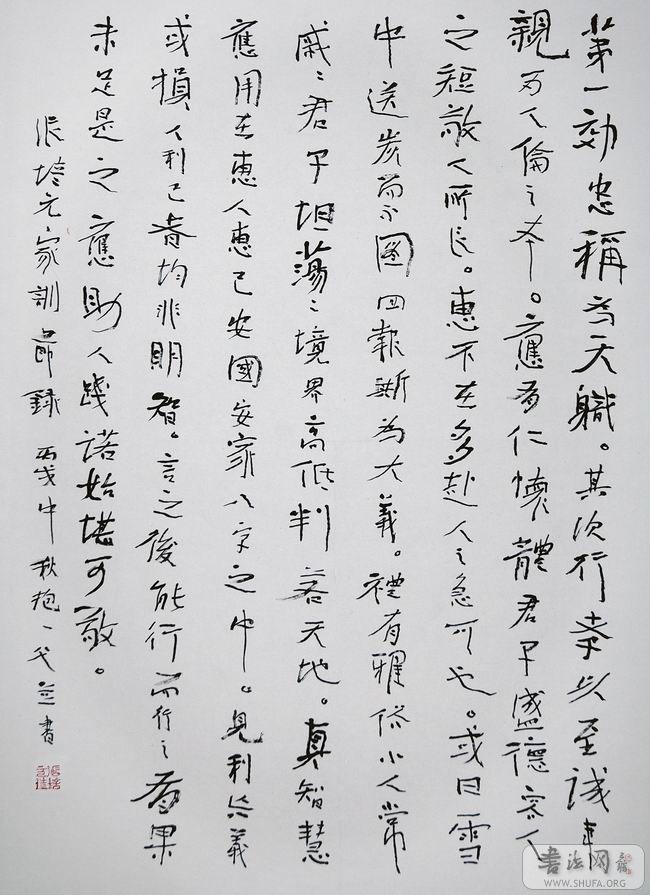 第一効忠稱为天職。其次行孝以至诚事
親乃人倫之本。應有仁懷體君子盛德容人
之短敬人所長。惠不在多赴人之急可也。或曰雪
中送炭而不圖回報斯为大義。禮有雅俗小人常
戚〻君子坦蕩〻境界高低判若天地。真智慧
應用在惠人惠己安國安家八字之中。見利忘義
或損人利己者均非明智。言之後能行而行之有果
未足是之應助人踐诺始堪可敬。
張培元家訓節錄 丙戌中秋抱一 書
書法网
WWW.SHUFA.ORG